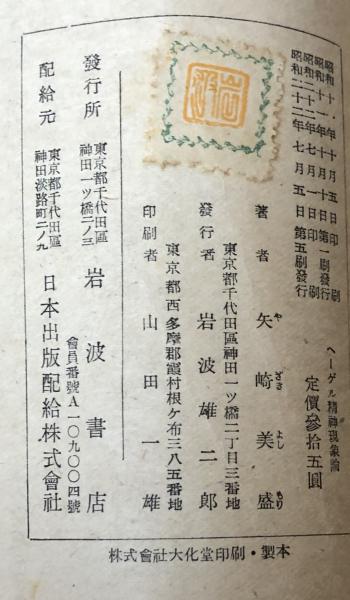 ヘーゲル精神現象論
定價參拾五圓
昭和十一年十月五日印刷
昭和十一年十月十日第一刷發行
昭和二十二年七月一日印刷
昭和二十二年七月五日第五刷發行
著者 矢崎美盛
やざきよしもり
東京都千代田區神田一ツ橋二丁目三番地
發行者 岩波雄二郎
東京都西多摩郡霞村根ケ布三八五番地
印刷者 山田一雄
發行所 東京都千代田區神田一ツ橋二ノ三 岩波書店
會員番號A一〇九〇〇四號
配給元 東京都千代田區神田淡路町二ノ九 日本出版配給株式會社
株式會社大化堂印刷・製本
岩波